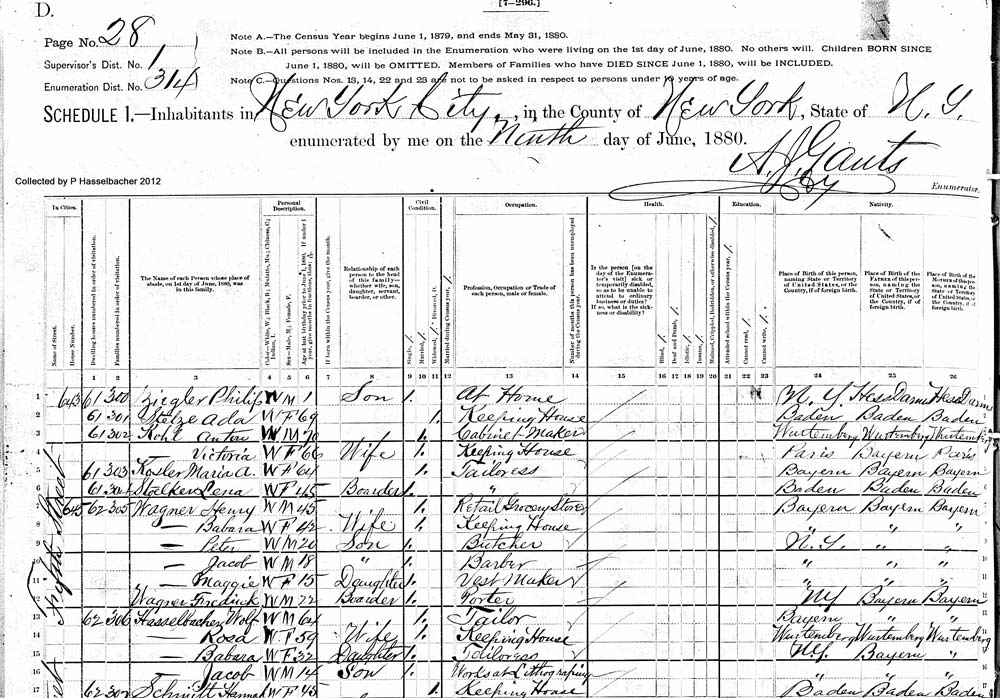 [7-296.]
D.
Page No. 28
Supervisor's Dist. No. 1
Enumeration Dist. No. 314
Note A.—The Census Year begins June 1, 1879, and ends May 31, 1880.
Note B.—All persons will be included in the Enumeration who were living on the 1st day of June, 1880. No others will. Children BORN SINCE
June 1, 1880, will be OMITTED. Members of Families who have DIED SINCE June 1, 1880, will be INCLUDED.
Note C.—Questions Nos. 13, 14, 22 and 23 are not to be asked in respect to persons under 10 years of age.
SCHEDULE 1.—Inhabitants in New York City, in the County of New York, State of N.Y.
enumerated by me on the Ninth day of June, 1880.
A. J. Gauts
Collected by P Hasselbacher 2012
Enumerator.
In Cities. Personal Description. Civil Condition. Occupation. Health. Education. Nativity.
Name of Street. House Number. Dwelling houses numbered in order of visitation. Families numbered in order of visitation.
The Name of each Person whose place of abode, on 1st day of June, 1880, was in this family.
Relationship of each person to the head of this family—whether wife, son, daughter, servant, boarder, or other.
Profession, Occupation or Trade of each person, male or female.
Number of months this person has been unemployed during the Census year.
Is the person [on the day of the Enumerator's visit] sick or temporarily disabled, so as to be unable to attend to ordinary business or duties? If so, what is the sickness or disability?
Place of Birth of this person, naming State or Territory of United States, or the Country, if of foreign birth.
Place of Birth of the FATHER of this person, naming the State or Territory of United States, or the Country, if of foreign birth.
Place of Birth of the MOTHER of this person, naming the State or Territory of United States, or the Country, if of foreign birth.
1 2 3 4 5 6 7 8 9 10 11 12 13 14 15 16 17 18 19 20 21 22 23 24 25 26
1 643 61 300 Ziegler Philip W M 1 Son At Home N.Y. Hess Darm Hess Darm
2 61 301 Ada W F 69 1. Keeping House Baden Baden Baden
3 61 302 Kohl W M 70 1. Cabinet Maker Wurtemberg Wurtemberg Wurtemberg
4 Victoria W F 66 Wife 1. Keeping House Paris Bayern Paris
5 61 303 Kosler Maria A. W F 64 1. Tailoress Bayern Bayern Bayern
6 61 304 Stoelker Lena W F 45 Boarder 1. " Baden Baden Baden
7 645 62 305 Wagner Henry W M 45 1. Retail Grocery Store Bayern Bayern Bayern
8 — Babara W F 42 Wife 1. Keeping House " " "
9 — Peter W M 20 Son 1. Butcher N.Y. " "
10 — Jacob W M 18 " 1. Barber " " "
11 — Maggie W F 15 Daughter 1. Vest Maker " " "
12 Wagner Fredrick W M 22 Boarder 1. Porter NY Bayern Bayern
13 62 306 Hasselbacher Wolf W M 64 1. Tailor Bayern " "
14 — Rosa W F 59 Wife 1. Keeping House Wurtemberg Wurtemberg Wurtemberg
15 — Babara W F 32 Daughter 1. Tailoress NY. Bayern "
16 Jacob W M 14 Son 1. Works at Lithographing " " "
62 307 Schmitt Hannah W F 45 1. Keeping House Baden Baden Baden
Fifth Street